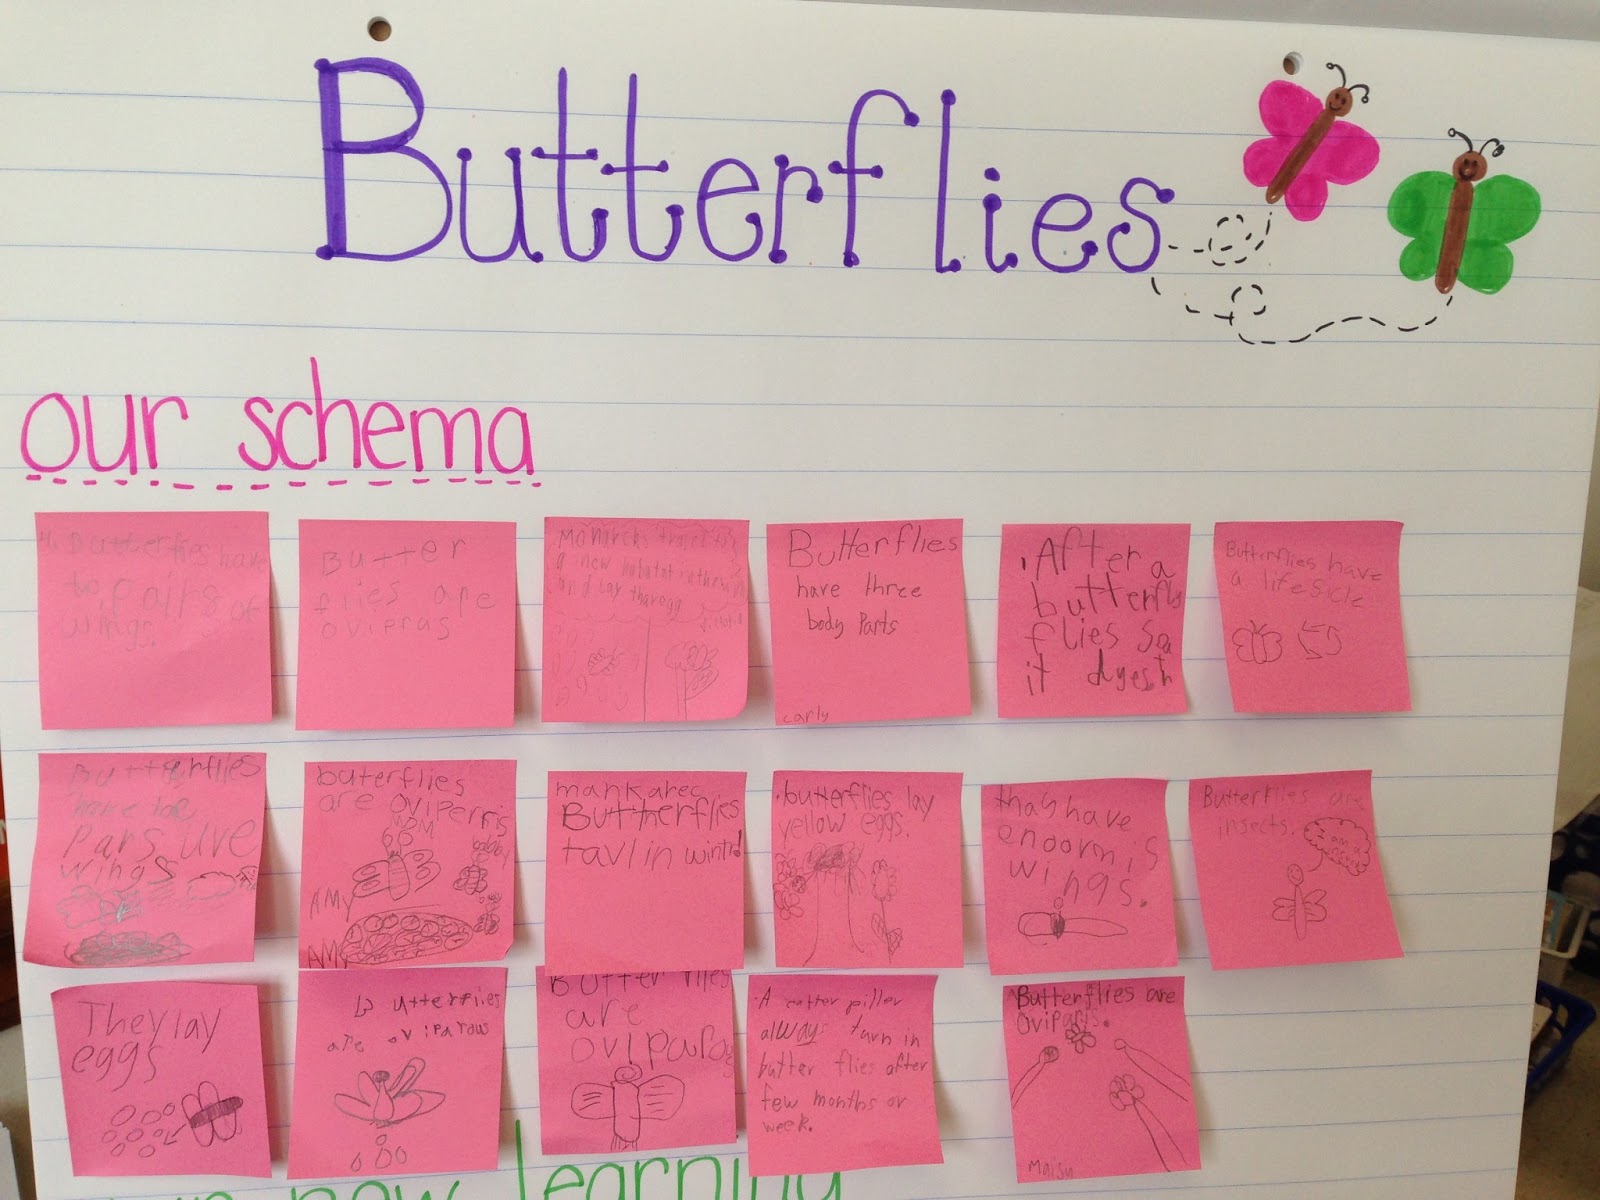 Butterflies
our schema
Butterflies have
to pairs of
wings.
Butter
flies are
oviperus
Monarchs travel to
a new habatat in the
and lay thar egg
Butterflies
have three
body Parts
carly
.After
a
butterfly
flies
it dyest
Butterflies have
a lifesicle
Butterflies
have
Pars uve
wings
buterflies
are oviperris
MOM
babby
AMY
AMY
Butterflies
tavl in wintr
.butterflies lay
yellow eggs.
thay have
enoormis
wings.
Butterflies are
insects.
I am
They lay
eggs
Butterflies
are oviparous
Butterflies
are
oviparos
.A catter piller
always turn in
butter flies after
few months or
week.
Butterflies are
oviparis.
Maisy
new learning